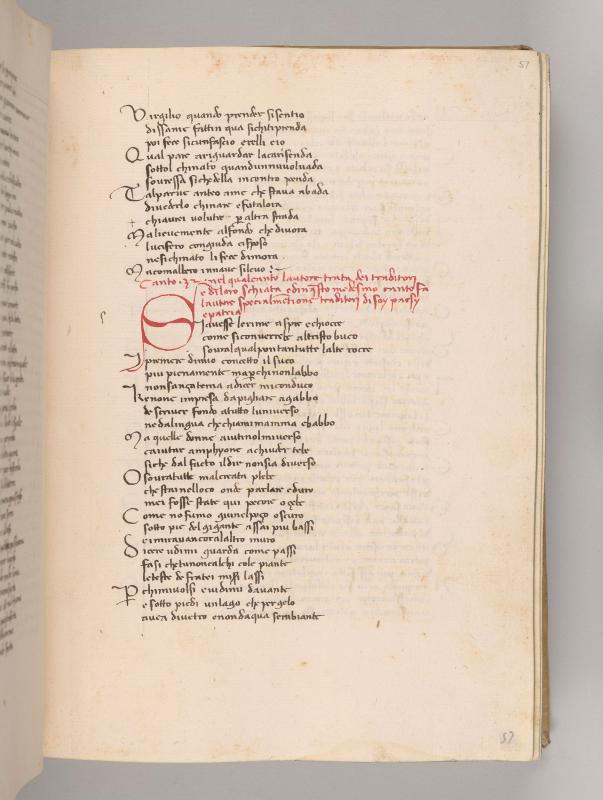 57
Virgilio quando prender si sentio
dissame fattin qua sichitiprenda
poi fece sicunfascio erelli eio
Qual pare ariguardar lacarisenda
sottol chinato quandunnuvolvada
sovressa sichedella incontro penda
Talparve anteo ame chestava abada
divederlo chinare efutalora
chiavrei volute per altra strada
Malievemente alfondo chedivora
lucifero congiuda cisposo
nesichinato lifece dimora
Macomalbero innave silevo
Canto nelqualcanto lautore tratta dei traditori
e diloro schiata edinquesto medesimo canto fa
lautore spetialmentione traditori disoy parenty
epatria
s
Siavesse lerime aspre echiocce
come siconverrebe altristo buco
sovralqualpontantutte laltre rocce
I premere dimio concetto il suco
piu pienamente maperchinonlabbo
non sanzatema adicer miconduco
Kenone impresa dapigliare agabbo
descriver fondo atutto luniverso
nedalingua chechiamimamma ebabbo
Ma quelle donne aiutinolmioverso
caiutar amphyone achiuder tebe
siche dal facto ildir nonsia diverso
O sovratutte malcreata plebe
chestainelloco onde parlare eduro
mei fosse state qui pecore o zebe
Come nofumo giunelpozo oscuro
sotto pie delgigante assai piu bassi
eimiravancoralalto muro
Dicere udimi guarda come passi
fasi chetunoncalchi cole piante
leteste defratei miseri lassi
Perchimivolsi evidimi davante
esotto piedi unlago che pergelo
avea divetro enondaqua sembiante
57